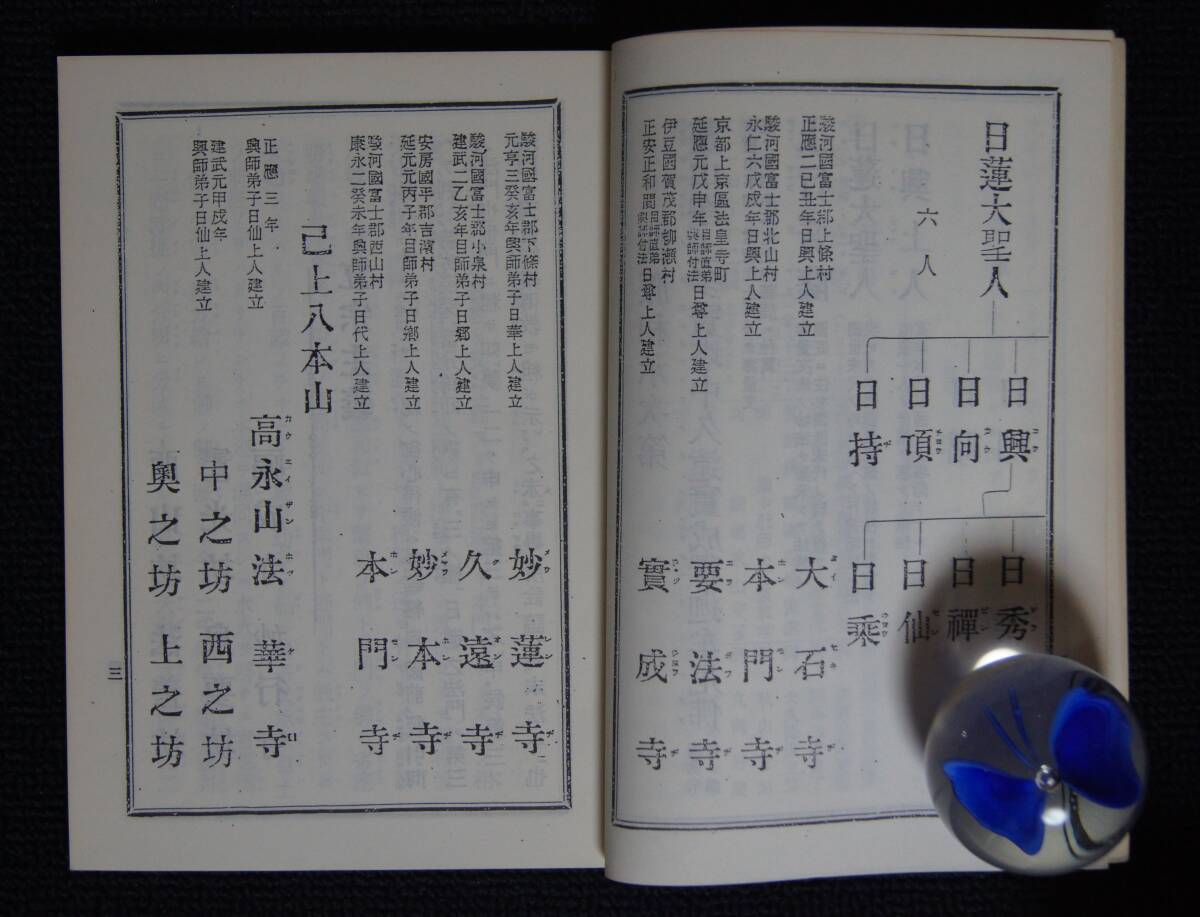 日蓮大聖人
六人
日興
日向
日頂
日持
日秀
日禪
日仙
日乘
駿河國富士郡上條村
正應二己丑年日興上人建立
大石寺
駿河國富士郡北山村
永仁六戊戌年日興上人建立
本門寺
京都上京區法皇寺町
延應元戊申年目師直弟興師付法日尊上人建立
要法寺
伊豆國賀茂郡柳瀬村
正安正和間目師直弟興師付法日尊上人建立
實成寺
駿河國富士郡下條村
元亨三癸亥年興師弟子日華上人建立
妙蓮寺
駿河國富士郡小泉村
建武二乙亥年目師弟子日郷上人建立
久遠寺
安房國平郡吉濱村
延元元丙子年目師弟子日郷上人建立
妙本寺
駿河國富士郡西山村
康永二癸未年興師弟子日代上人建立
本門寺
己上八本山
正應三年
興師弟子日仙上人建立
高永山法華寺
建武元甲戌年
興師弟子日仙上人建立
中之坊 西之坊
奥之坊 上之坊
三